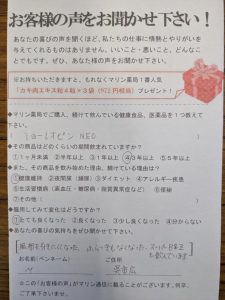 お客様の声をお聞かせ下さい!
あなたの喜びの声を聞くほど、私たちの仕事に情熱とやりがいを
与えてくれるものはありません。いいこと・悪いこと、どんなこ
とでもです。ぜひ、あなた様の声をお聞かせ下さい。
※お持ちいただきますと、もれなくマリン薬局1番人気
「カキ肉エキス粒4粒×3袋(972円相当)」プレゼント!
◇マリン薬局でご購入、続けて飲んでいる健康食品、医薬品を1つ教えて
下さい。
◇その商品はどのくらいの期間飲まれていますか?
①1ヶ月未満 ②半年以上 ③1年以上 ④3年以上 ⑤5年以上
◇また、その商品を飲み始めた理由、続けている理由は?
①健康維持 ②夜間尿(頻尿) ③ダイエット ④アレルギー疾患
⑤生活習慣病(高血圧・糖尿病・脂質異常症など) ⑥便秘
⑦その他(
◇服用してみて変化はどうですか?
①とても良くなった ②良くなった ③少し良くなった ④分からない
◇あなたの喜びの気持ちをぜひ聞かせて下さい。
お名前(ペンネーム) ご住所
※この「お客様の声」がマリン通信に載ることがございます。何卒、
ご了承下さいませ。